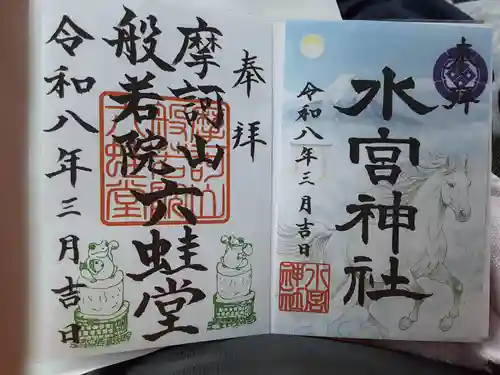 奉拝
水宮神社
令和八年三月吉日
水宮神社
奉拝
摩訶山
般若院六蛙堂
令和八年三月吉日